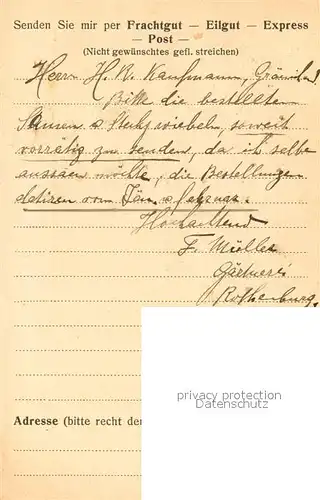 Senden Sie mir per Frachtgut — Eilgut — Express
— Post —
(Nicht gewünschtes gefl. streichen)
Herrn H. R. Kaufmann,
Bitte die bestellten
Samen & Steckzwiebeln, soweit
vorrätig zu senden, da ich selbe
aussäen möchte, die Bestellungen
datiren vom Jän. &
Hochachtend
F. Müller
Gärtnerei
Rothenburg.
privacy protection
Datenschutz
Adresse (bitte recht de